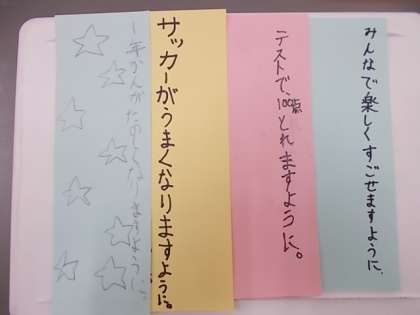 みんなで楽しくすごせますように
テストで、100点とれますように。
サッカーがうまくなりますように。
1年かんがたのしくなりますように。